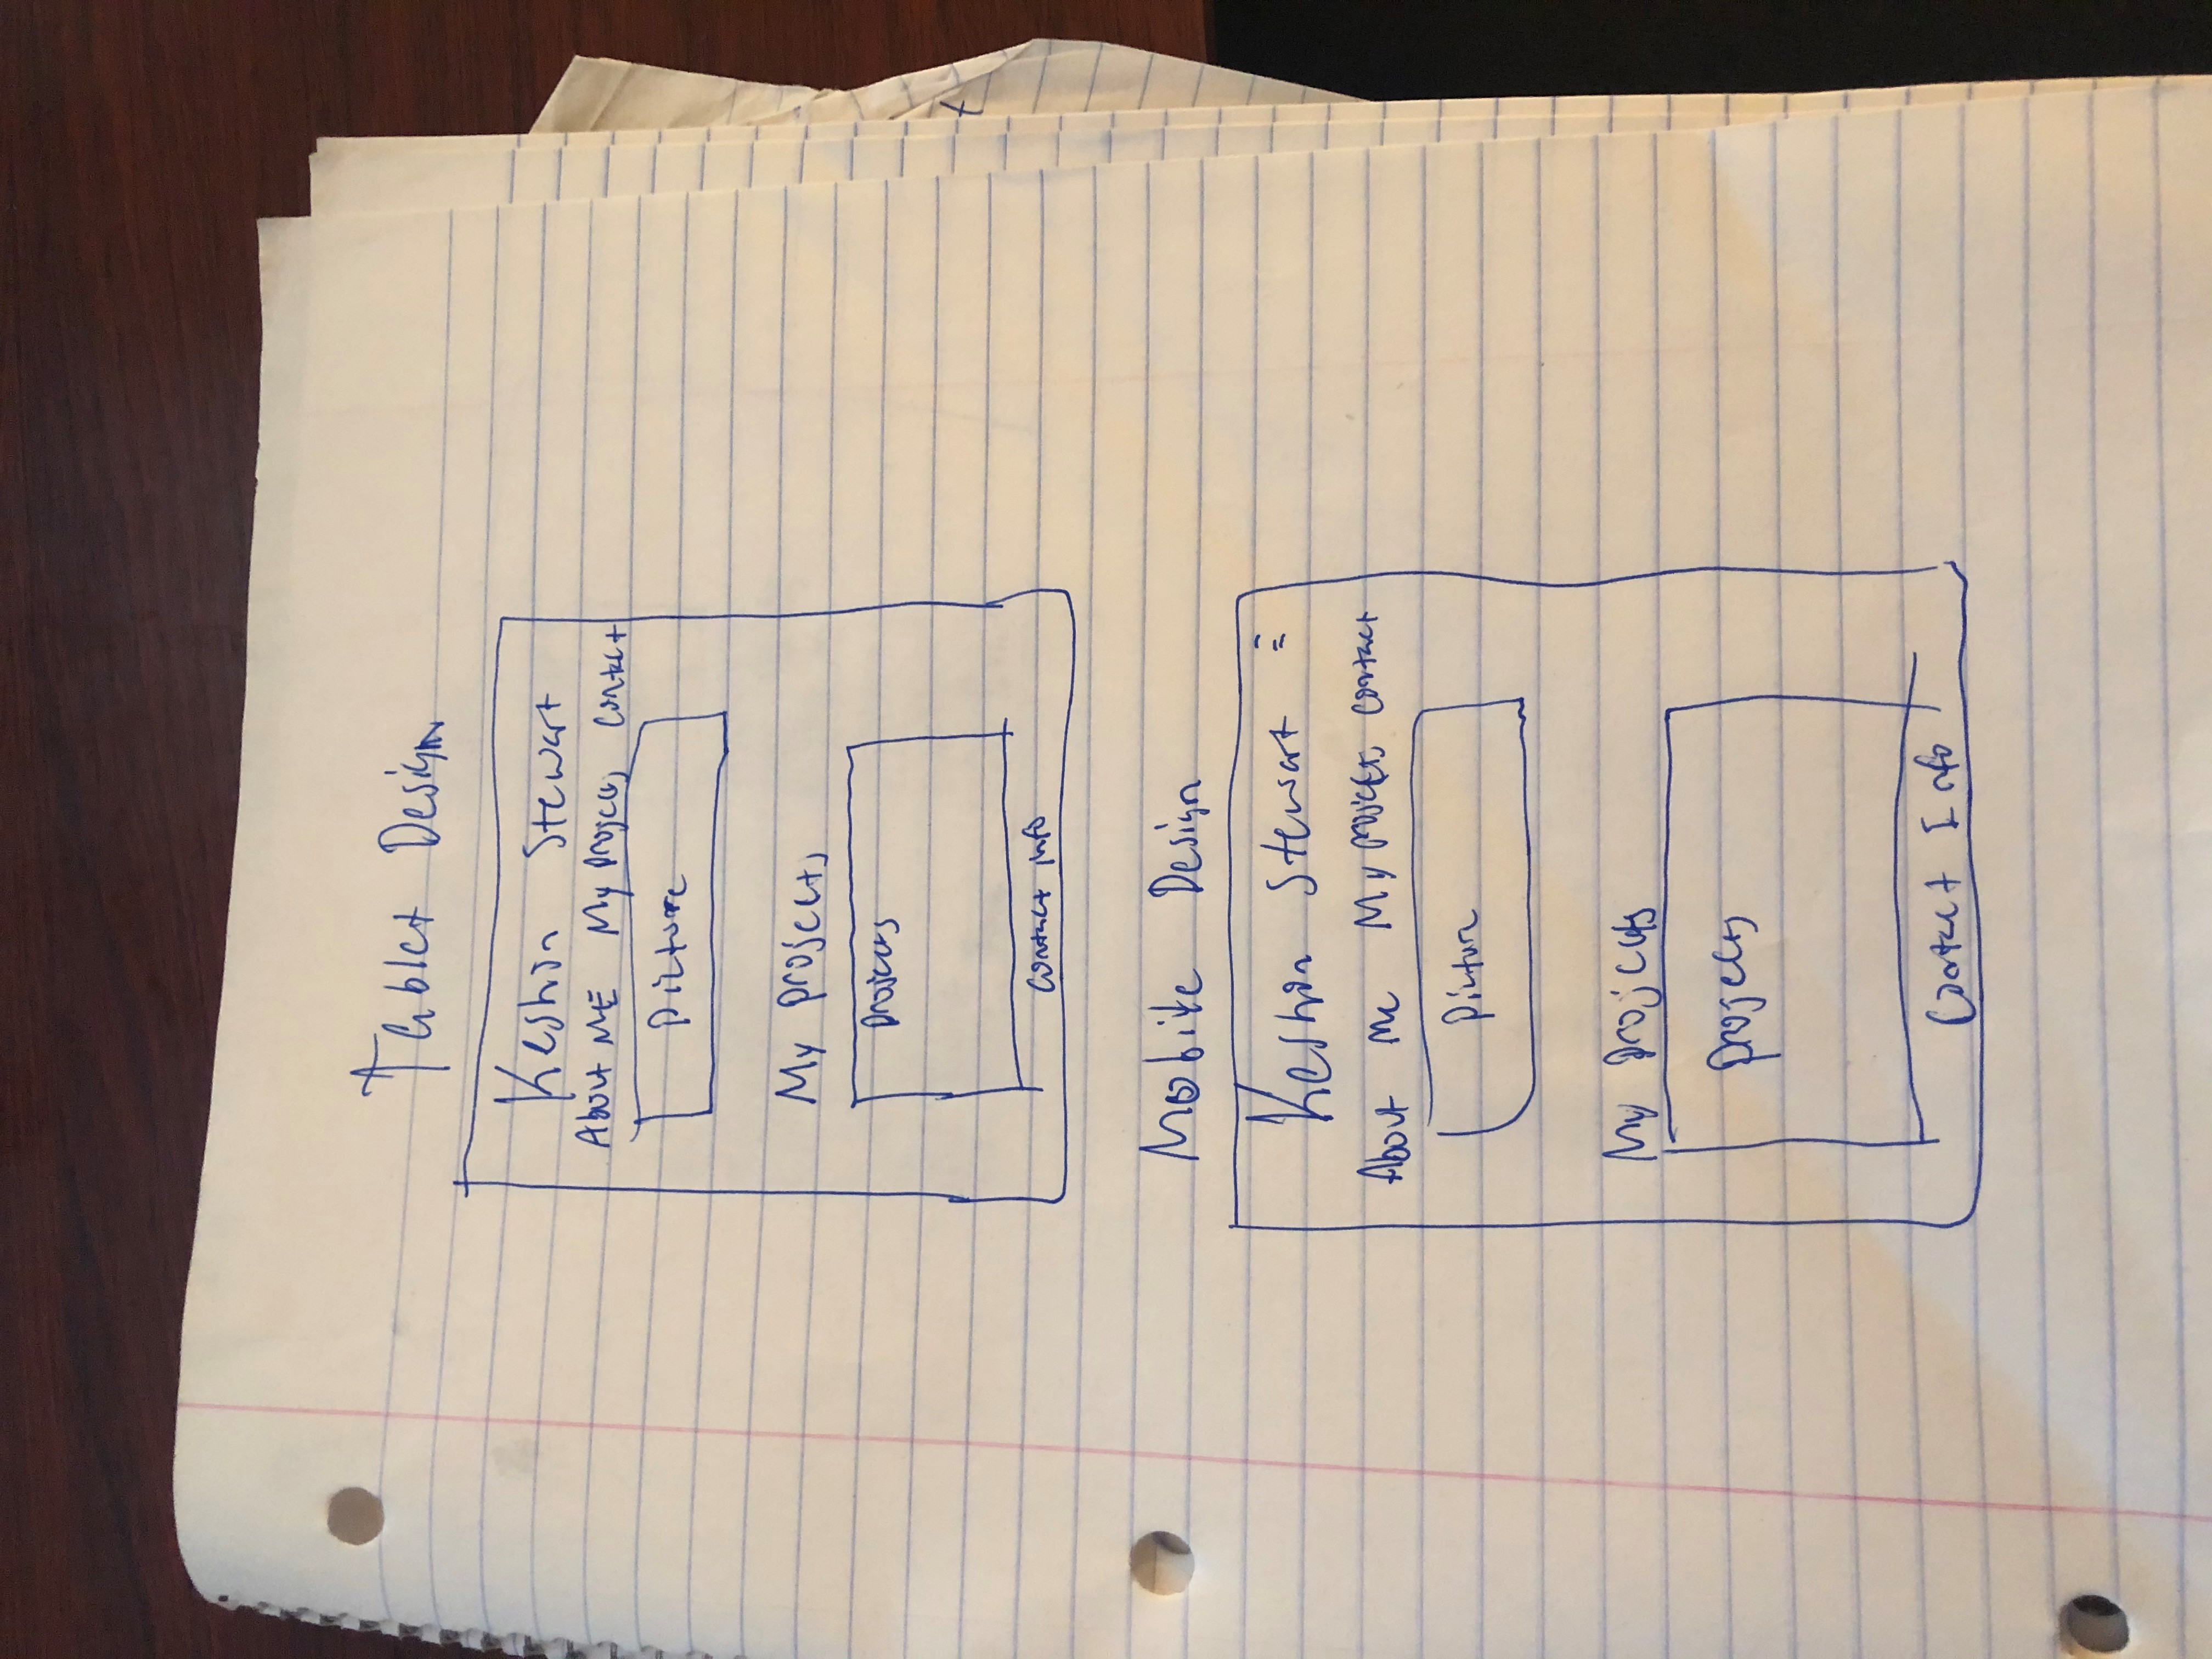 Tablet Design
Keshon Stewart
About ME My Projects Contact
Picture
My projects
Projects
Contact Info
Mobile Design
Keshon Stewart =
About me My projects contact
Picture
My projects
projects
Contact Info